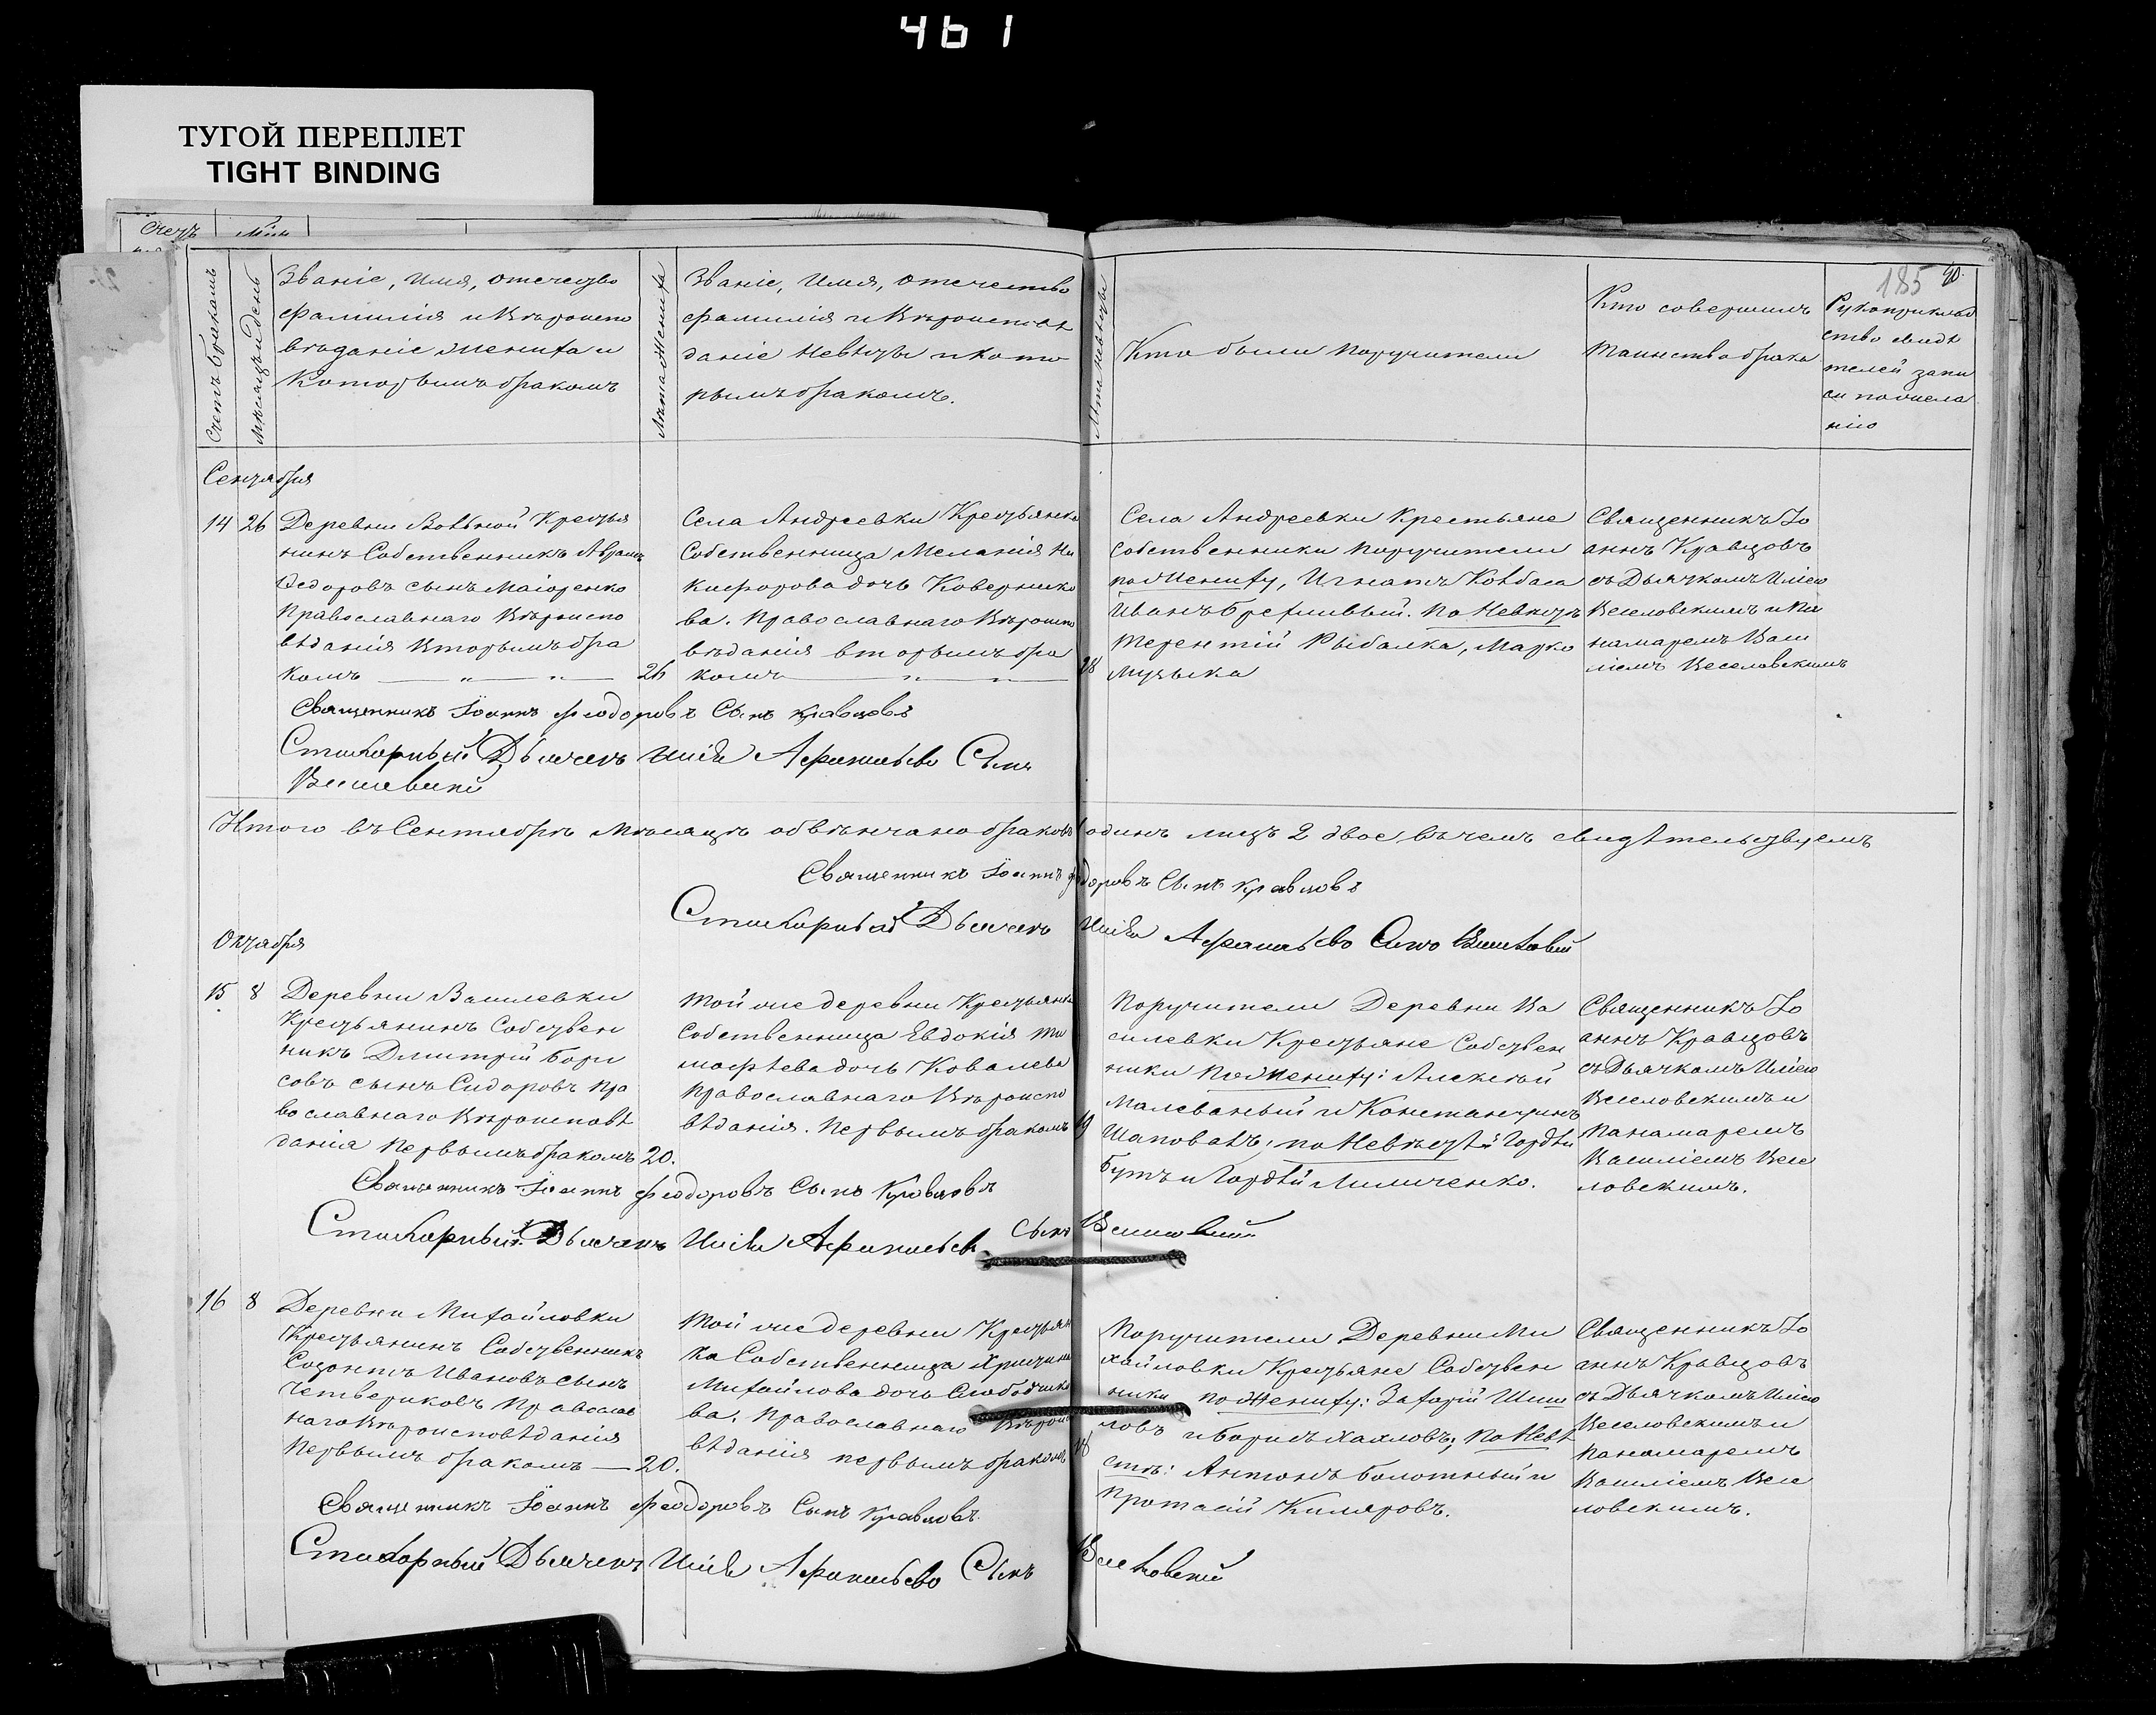 461
ТУГОЙ ПЕРЕПЛЕТ
TIGHT BINDING
Счетъ
185 40.
Счетъ бракамъ
Мѣсяцъ и день
Званіе, имя, отечество
фамилія и вѣроиспо
вѣданіе жениха и
которымъ бракомъ
Лѣта жениха
Званіе, имя, отечество
фамилія и вѣроисповѣ
даніе невѣсты и кото
рымъ бракомъ.
Лѣта невѣсты
Кто были поручители
Кто совершилъ
таинство брака
Рукоприклад
ство свидѣ
телей запи
си по жела
нію
Сентября
14 26
Деревни Вольной Крестья
нинъ Собственникъ Аврамъ
Федоровъ сынъ Маіоренко
Православнаго Вѣроиспо
вѣданія Вторымъ бра
комъ — „ — „ — 26
Села Андреевки Крестьянка
Собственница Меланія Ни
кифорова дочь Коверникo
ва. Православнаго Вѣроиспо
вѣданія вторымъ бра
комъ — „ — „ — 28
Села Андреевки Крестьяне
собственники поручители
по жениху, Игнатъ Ковбаса
Иванъ Брехливый. По Невѣстѣ
Терентій Рыбалка, Марко
Музыка
Священникъ Іо
аннъ Кравцовъ
съ Дьячкомъ Иліею
Веселовскимъ и По
намаремъ Васи
ліемъ Веселовскимъ
Священникъ Іоаннъ Феодоровъ Сынъ Кравцовъ
Стихорный Дьячекъ Илія Афанасьевъ Сынъ
Веселовский
Итого въ Сентябрѣ мѣсяцѣ обвѣнчано браковъ одинъ лицъ 2 двое, въ чемъ свидѣтельствуемъ
Священникъ Іоаннъ Феодоровъ Сынъ Кравцовъ
Стихорный Дьячекъ Илія Афанасьевъ Сынъ Веселовский
Октября
15 8
Деревни Василевки
Крестьянинъ Собствен
никъ Дмитрій Бори
совъ сынъ Сидоровъ Пра
вославнаго Вѣроисповѣ
данія Первымъ бракомъ 20.
Той же деревни Крестьянка
Собственница Евдокія Ти
мофѣева дочь Ковалева
Православнаго Вѣроиспо
вѣданія. Первымъ бракомъ 19
Поручители Деревни Ва
силевки Крестьяне Собствен
ники по жениху: Алексѣй
Малеваный и Константинъ
Шаповалъ; по Невѣстѣ: Гордѣй
Бутъ и Гордѣй Лимченко.
Священникъ Іо
аннъ Кравцовъ
съ Дьячкомъ Иліею
Веселовскимъ и
Панамаремъ
Василіемъ Весе
ловскимъ.
Священникъ Іоаннъ Феодоровъ Сынъ Кравцовъ
Стихорный Дьячекъ Илія Афанасьевъ Сынъ Веселовский
16 8
Деревни Михайловки
Крестьянинъ Собственникъ
Созонтъ Ивановъ сынъ
Четвериковъ Православ
наго Вѣроисповѣданія
Первымъ бракомъ — 20.
Той же деревни Крестьян
ка Собственница Христина
Михайлова дочь Слободчико
ва. Православнаго Вѣроиспо
вѣданія первымъ бракомъ 18
Поручители Деревни Ми
хайловки Крестьяне Собствен
ники по Жениху: Захарій Шиш
ловъ и Борисъ Хаиловъ; по Невѣ
стѣ: Антонъ Болотный и
Протасій Киляровъ.
Священникъ Іо
аннъ Кравцовъ
съ Дьячкомъ Иліею
Веселовскимъ и
Панамаремъ
Василіемъ Весе
ловскимъ.
Священникъ Іоаннъ Феодоровъ Сынъ Кравцовъ.
Стихорный Дьячекъ Илія Афанасьевъ Сынъ Веселовский